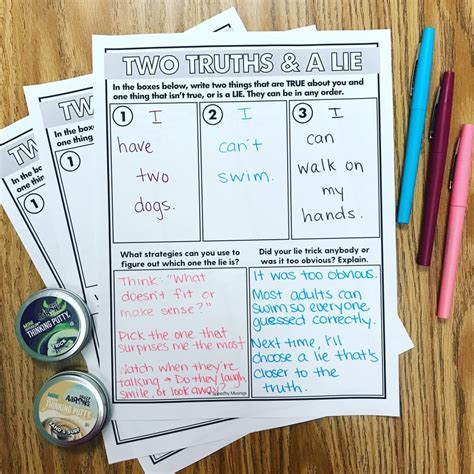 TWO TRUTHS & A LIE
In the boxes below, write two things that are TRUE about you and
one thing that isn't true, or is a LIE. They can be in any order.
1 I
have
two
dogs.
2 I
can't
swim.
3 I
can
walk on
my
hands.
What strategies can you use to
figure out which one the lie is?
Think: "What
doesn't fit or
make sense?"
Pick the one that
surprises me the most
Watch when they're
talking → Do they laugh,
smile, or look away?
Did your lie trick anybody or
was it too obvious? Explain.
It was too obvious.
Most adults can
swim so everyone
guessed correctly.
Next time, I'll
choose a lie that's
closer to the
truth.
TW
In the boxes
one thing
1
TW
In the b
one thi
1
MINI
THINKING PUTTY
MINI
THINKING PUTTY